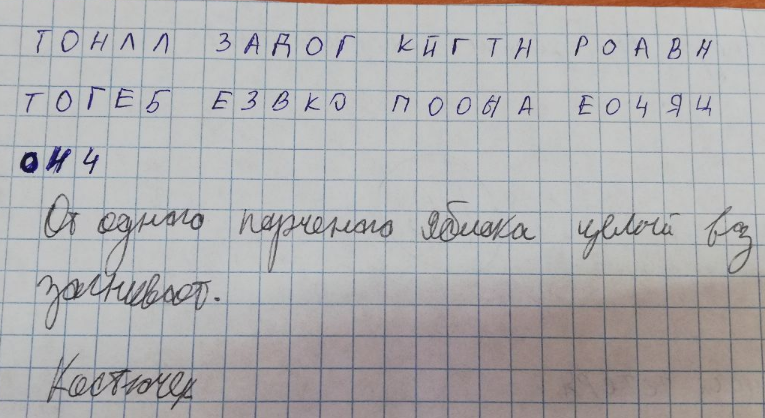 ТОНЛЛ ЗАДОГ КЙГТН РОАВН
ТОГЕБ ЕЗВКО ПООЫА ЕОЧЯЦ
ОНЧ
От одного порченого яблока целый воз
загнивает.